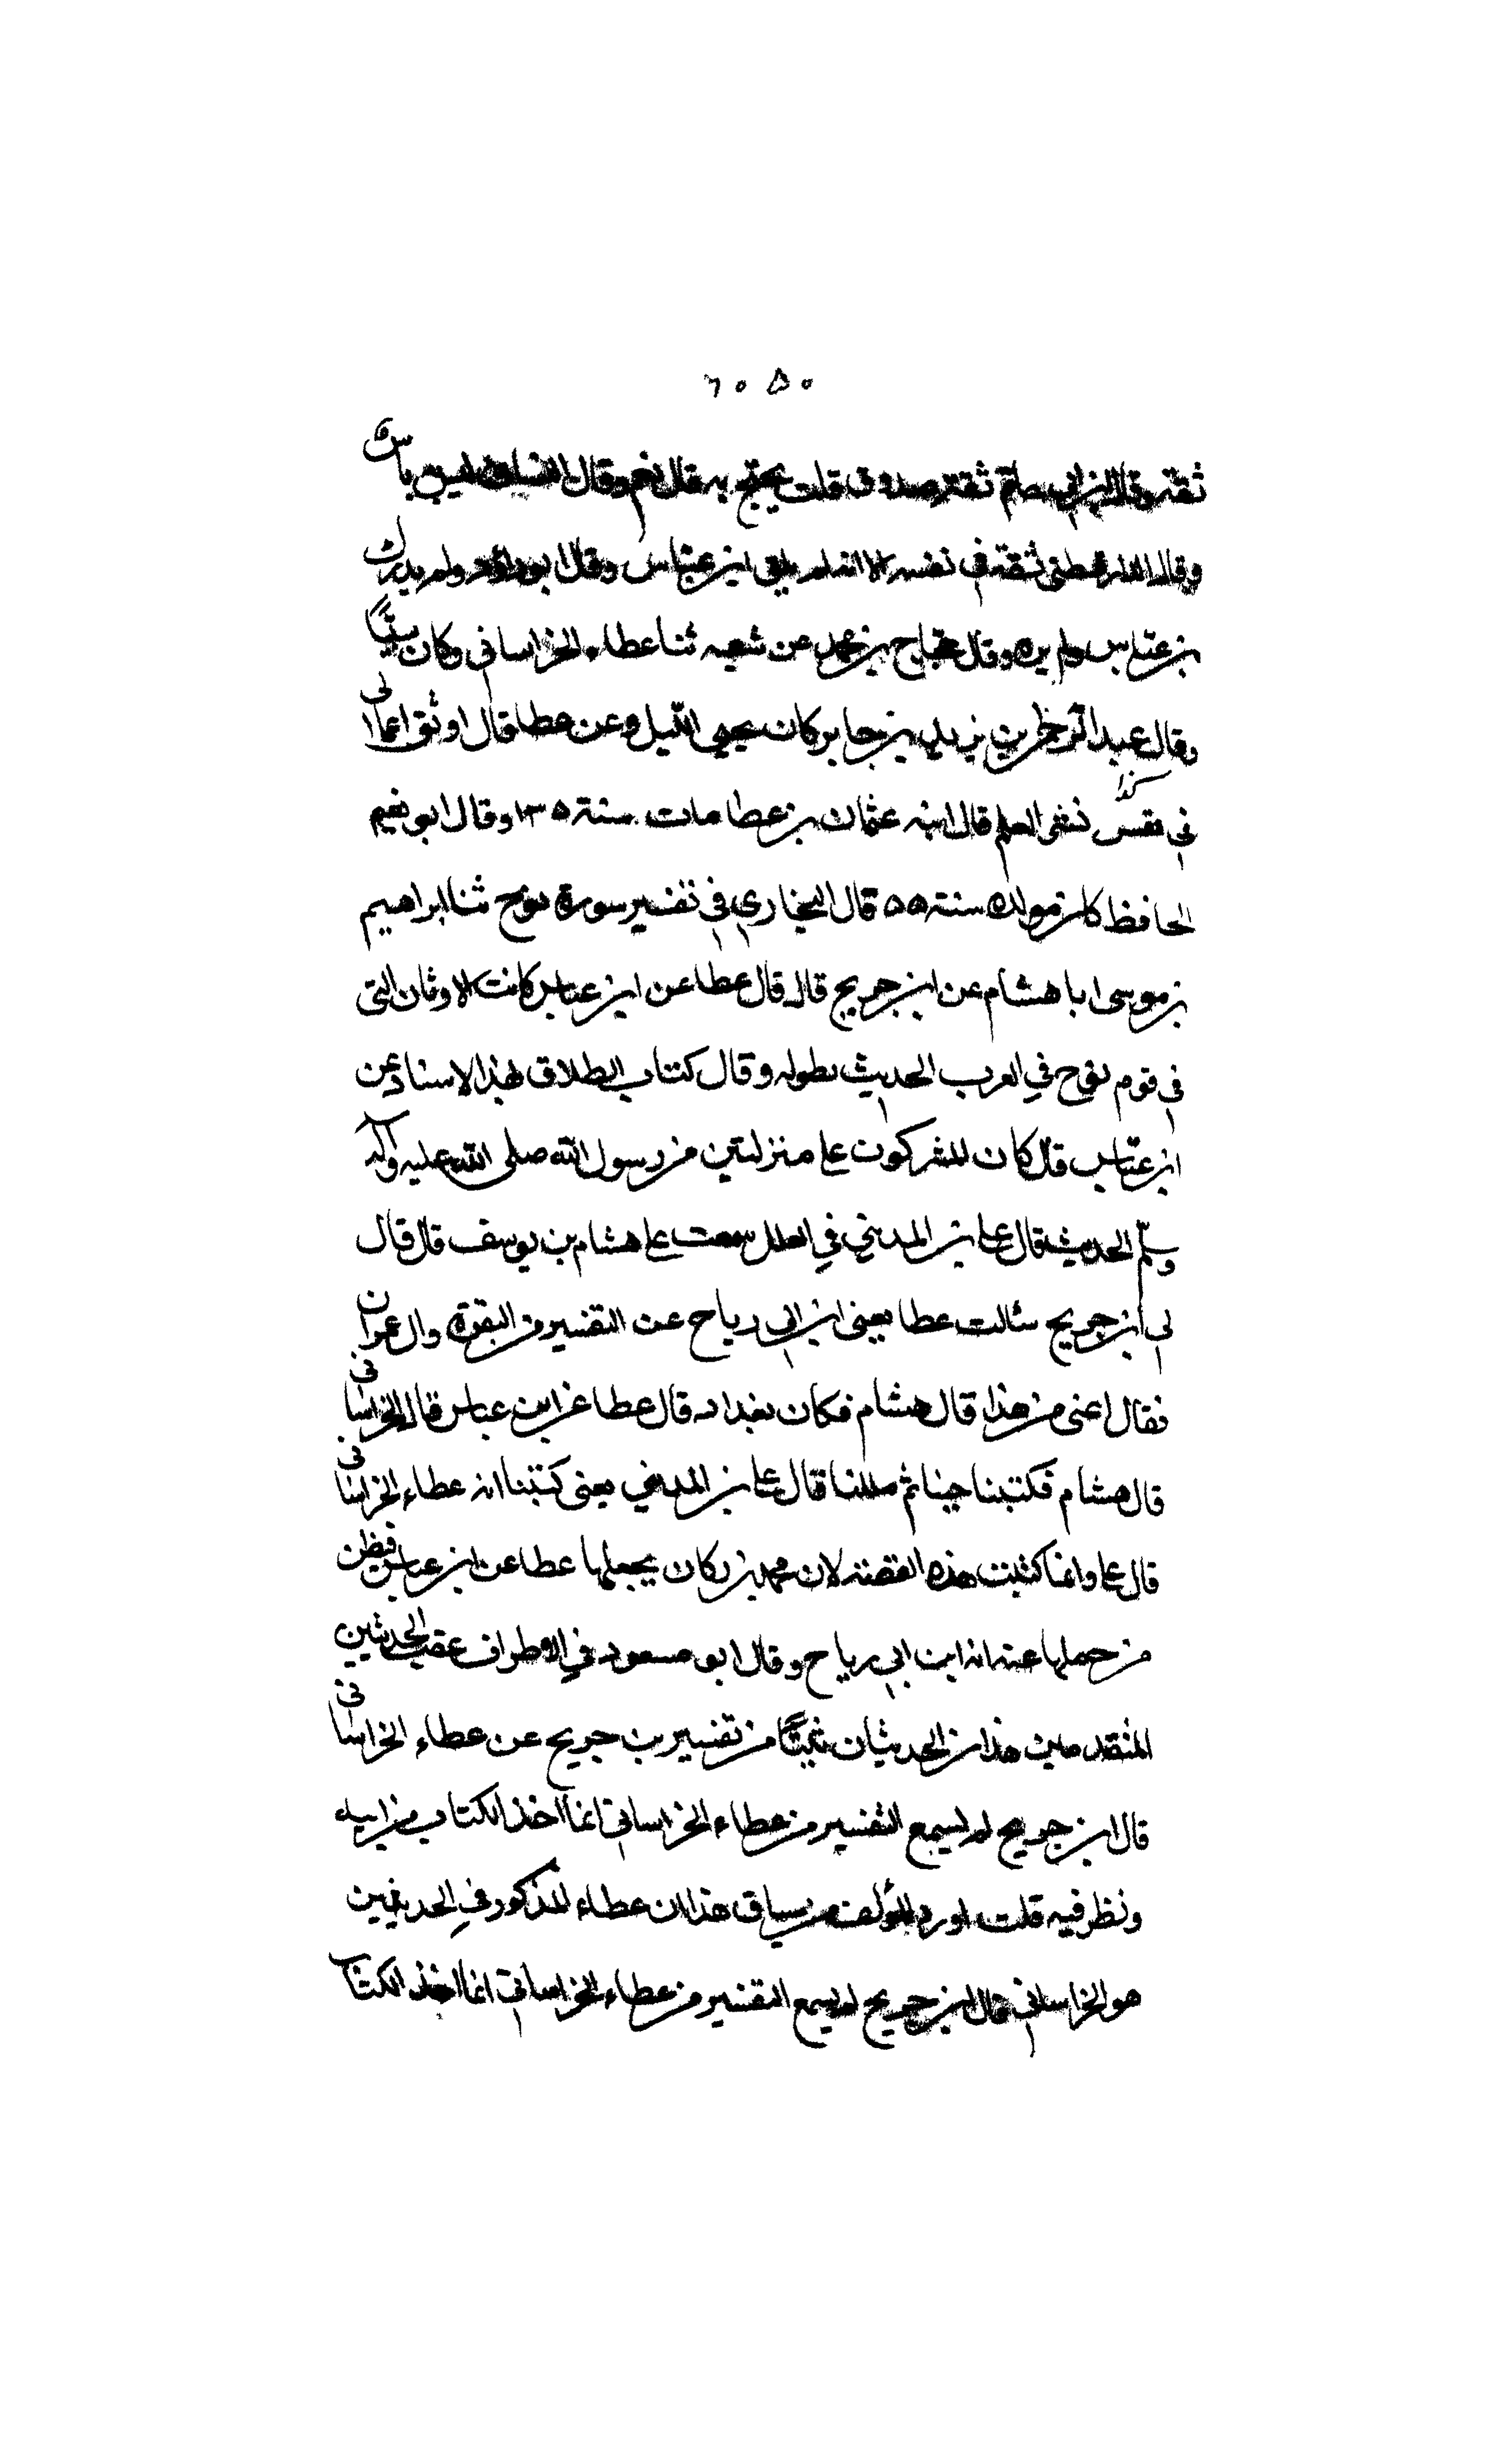 ٦٠٥٠
ثقة وقال ابن ابي حاتم ثقة صدوق قلت يحتج به قال نعم وقال النسائي ليس به باس
وقال الدارقطني ثقة في نفسه الا انه لم يلق ابن عباس وقال ابو داود ولم يدرك
بن عباس ولم يره وقال حجاج بن محمد عن شعبه ثنا عطاء الخراساني وكان نسيّا
وقال عبد الرحمن بن يزيد بن جابر كان يحيي الليل وعن عطا قال اوثق اعمالى
في نفسي نشر العلم قال ابنه عثمان بن عطا مات سنة ١٣٥ وقال ابو نعيم
الحافظ كان مولده سنة ٥٥ قال البخاري في تفسير سورة نوح ثنا ابراهيم
بن موسى ابا هشام عن ابن جريج قال قال عطا عن ابن عباس كانت الاوثان التى
في قوم نوح في العرب الحديث بطوله وقال كتاب الطلاق بهذا الاسناد عن
ابن عبّاس قال كان المشركون على منزلتين من رسول الله صلى الله عليه وآله
وسلّم الحديث قال علي بن المديني في العلل سمعت على هشام بن يوسف قال قال
لى ابن جريج سئالت عطا يعنى ابن ابي رياح عن التفسير من البقرة وال عمران
فقال اعفنى من هذا قال هشام فكان بعد اذ قال عطا عن ابن عباس قال الخراسانى
قال هشام فكتبنا حينا ثم مللنا قال على بن المديني يعنى كتبنا انه عطاء الخراسانى
قال على وانما كتبت هذه القصة لان محمد بن كان يجعلها عطا عن ابن عباس فيظن
من حملها عنه انه ابن ابي رياح وقال ابو مسعود في الاطراف عقب الحديثين
المتقدمين هذان الحديثان ثبتا من تفسير بن جريج عن عطاء الخراسانى
قال ابن جريح لم يسمع التفسير من عطاء الخراساني انما اخذ الكتاب من ابنه
ونظر فيه قلت اورد المؤلف من سياق هذا ان عطاء المذكور في الحديثين
هو الخراساني قال ابن جريح لم يسمع التفسير من عطاء الخراساني انما اخذ الكتاب